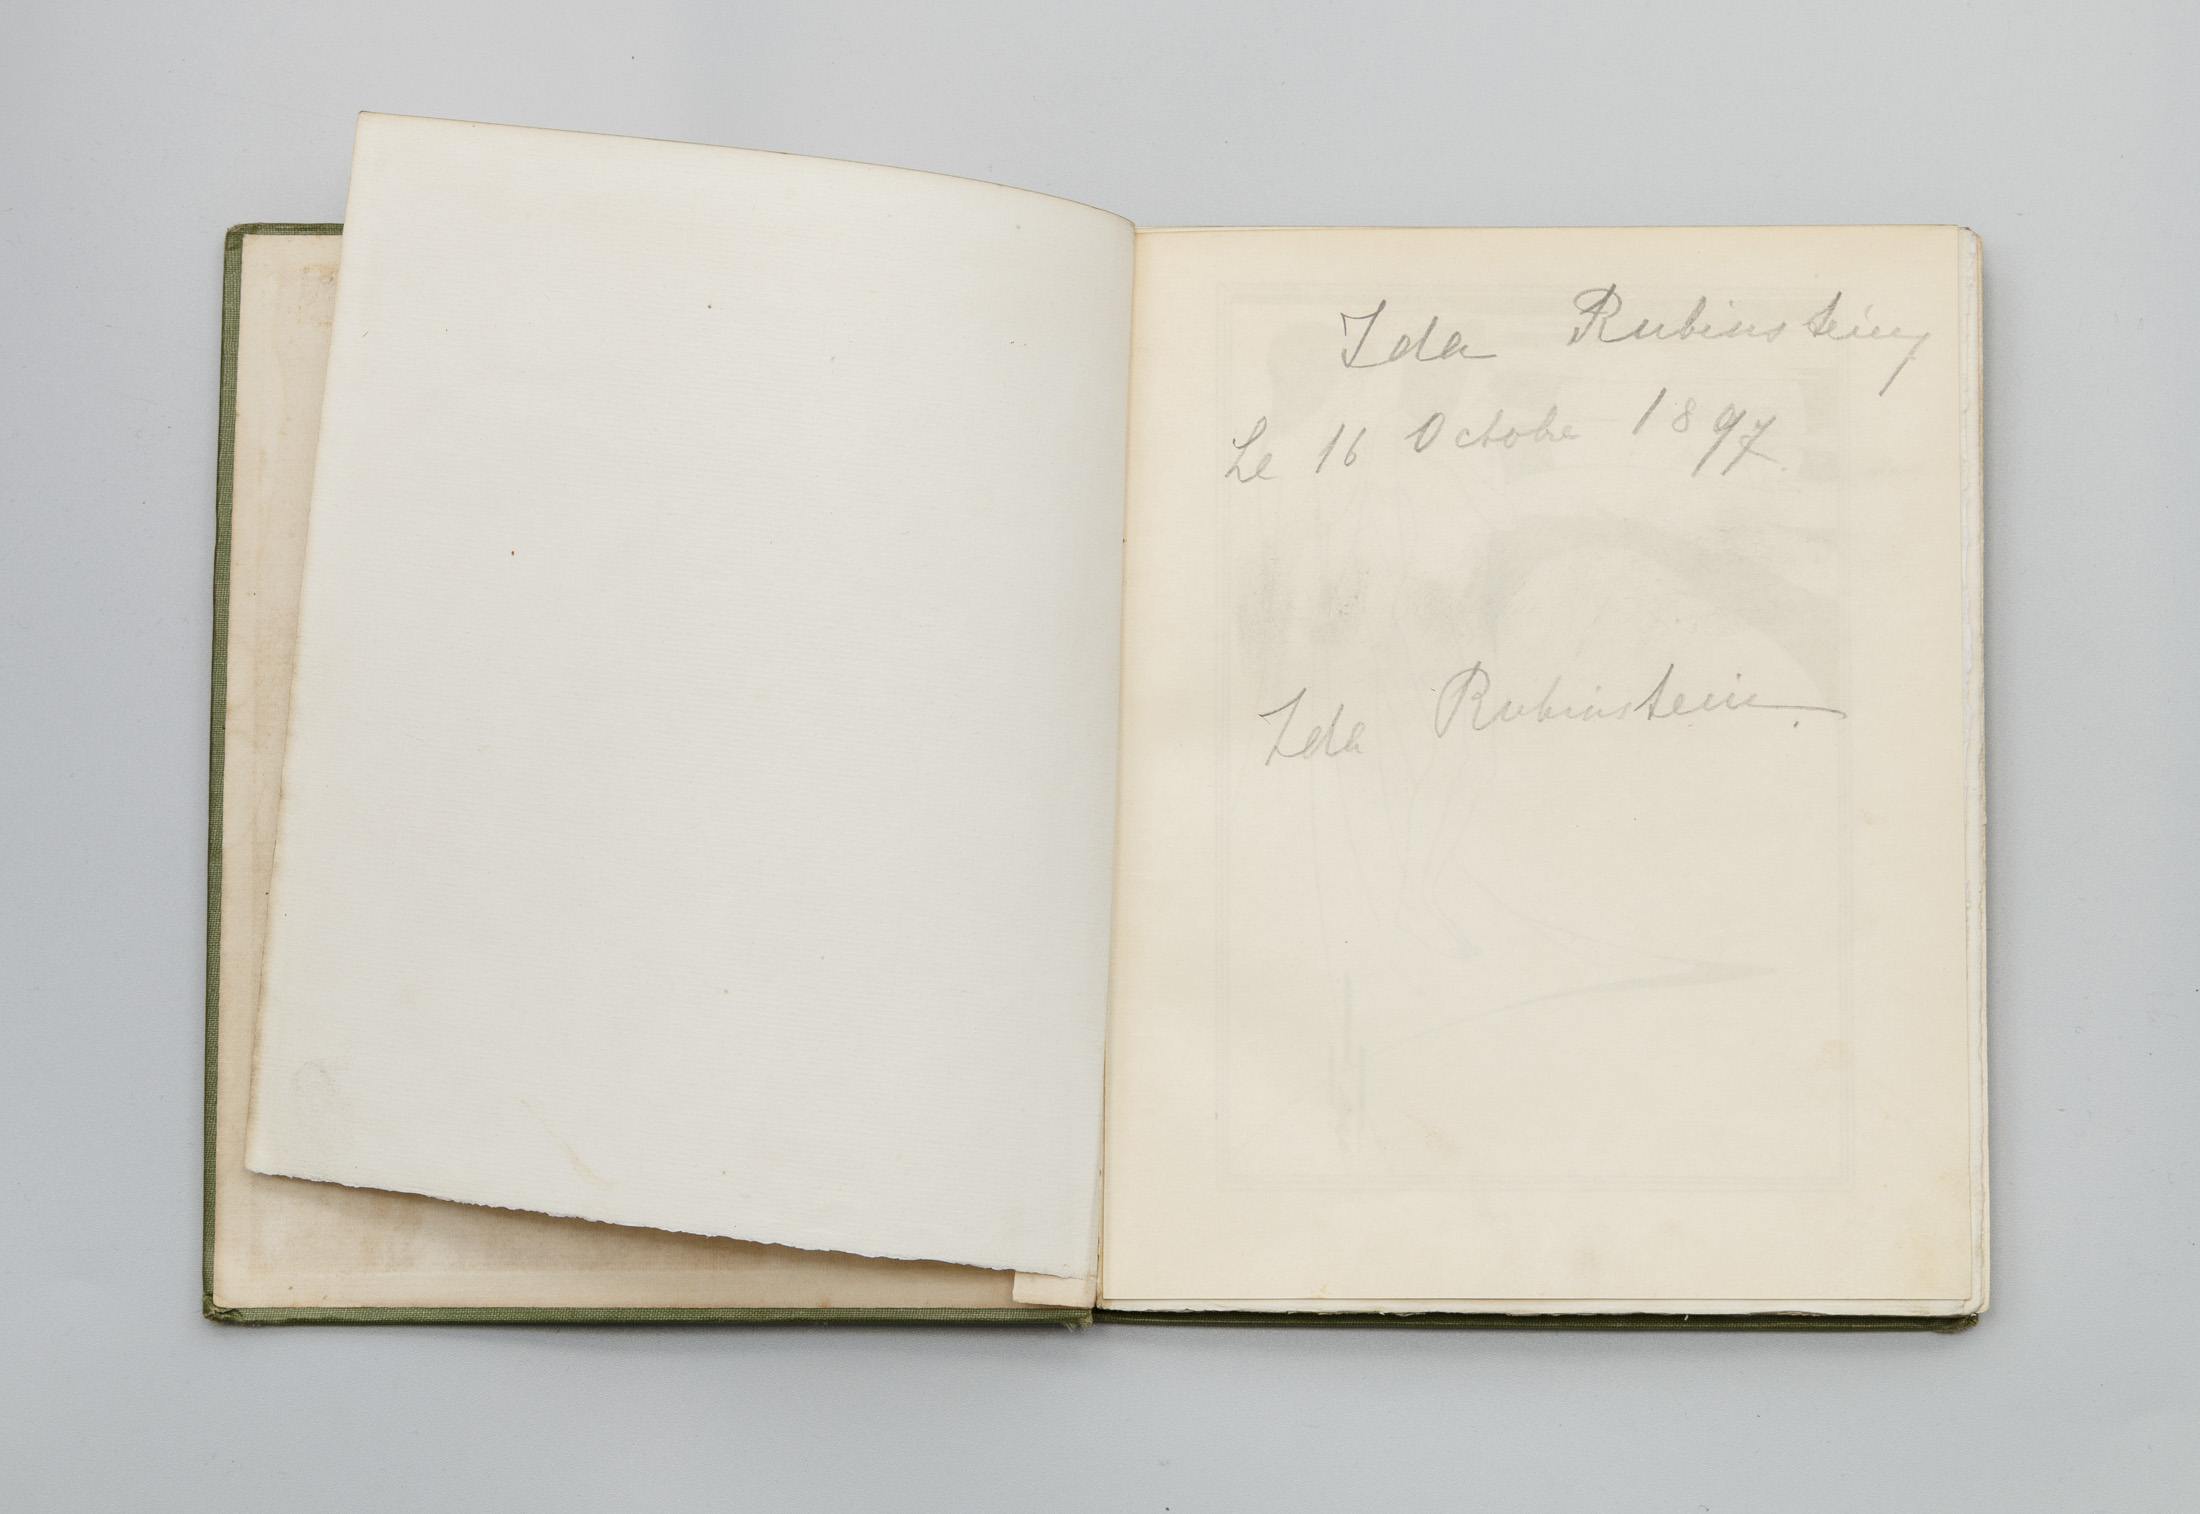 Ida Rubinstein
Le 16 Octobre 1897.
Ida Rubinstein.